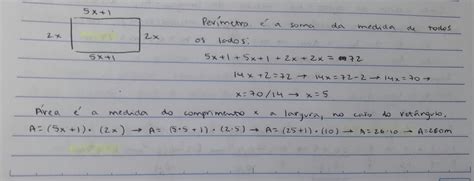 5x+1
2x 2x
5x+1
Perímetro é a soma da medida de todos
os lados:
5x+1 + 5x+1 + 2x + 2x = 72
14x + 2 = 72 → 14x = 72-2 → 14x = 70 →
x = 70/14 → x = 5
Área é a medida do comprimento x a largura, no caso do retângulo,
A = (5x+1) · (2x) → A = (5·5+1) · (2·5) → A = (25+1) · (10) → A = 26·10 → A = 260m